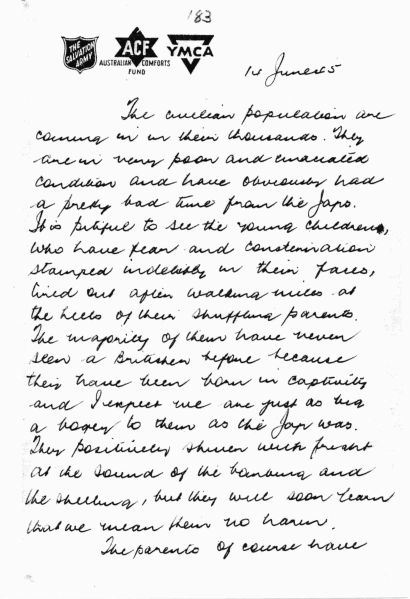 183
THE SALVATION ARMY
ACF
AUSTRALIAN COMFORTS FUND
YMCA
14 June 45
The civilian population are
coming in in their thousands. They
are in very poor and emaciated
condition and have obviously had
a pretty bad time from the Japs.
It is pitiful to see the young children,
who have fear and consternation
stamped indelibly in their faces,
tired out after walking miles at
the heels of their shuffling parents.
The majority of them have never
seen a Britisher before because
they have been born in captivity
and I expect we are just as big
a bogey to them as the Jap was.
They positively shiver with fright
at the sound of the bombing and
the shelling, but they will soon learn
that we mean them no harm.
The parents of course have